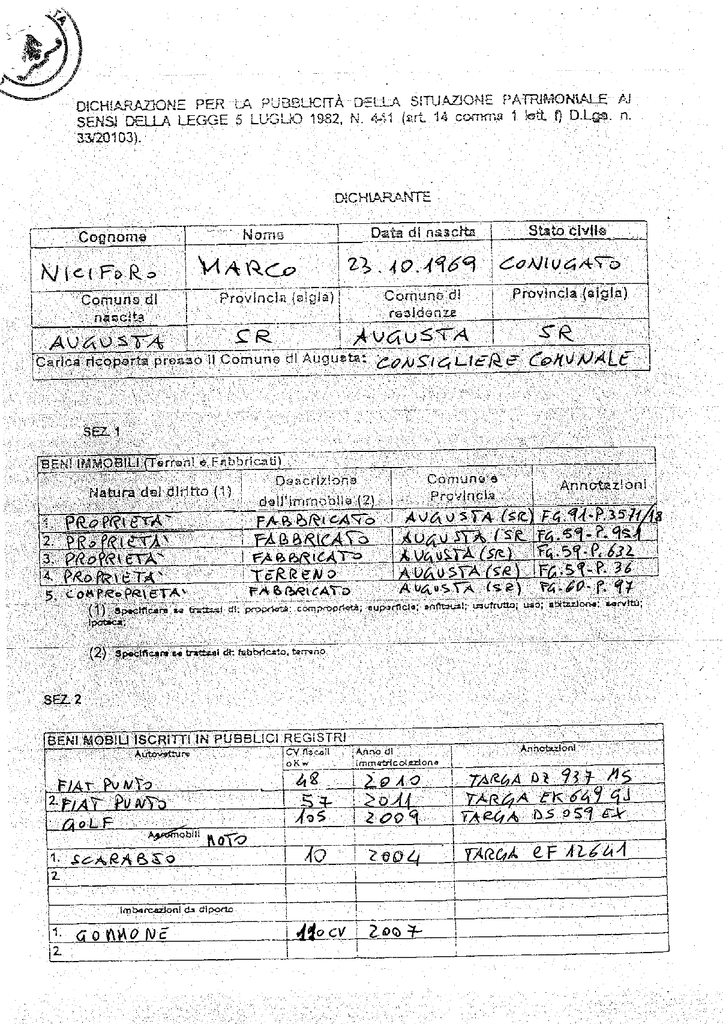 DICHIARAZIONE PER LA PUBBLICITÀ DELLA SITUAZIONE PATRIMONIALE AI
SENSI DELLA LEGGE 5 LUGLIO 1982, N. 441 (art. 14 comma 1 lett. f) D.Lgs. n.
33/20103).
DICHIARANTE
Cognome Nome Data di nascita Stato civile
NICIFORO MARCO 23.10.1969 CONIUGATO
Comune di nascita Provincia (sigla) Comune di residenza Provincia (sigla)
AUGUSTA SR AUGUSTA SR
Carica ricoperta presso il Comune di Augusta: CONSIGLIERE COMUNALE
SEZ. 1
BENI IMMOBILI (Terreni e Fabbricati)
Natura del diritto (1) Descrizione dell'immobile (2) Comune e Provincia Annotazioni
1. PROPRIETA' FABBRICATO AUGUSTA (SR) FG.91-P.3571/18
2. PROPRIETA' FABBRICATO AUGUSTA (SR FG.59-P.951
3. PROPRIETA' FABBRICATO AUGUSTA (SR) FG.59-P.632
4. PROPRIETA' TERRENO AUGUSTA (SR) FG.59-P.36
5. COMPROPRIETA' FABBRICATO AUGUSTA (SR) FG.60-P.97
(1) Specificare se trattasi di: proprietà; comproprietà; superficie; enfiteusi; usufrutto; uso; abitazione; servitù;
ipoteca;
(2) Specificare se trattasi di: fabbricato, terreno
SEZ. 2
BENI MOBILI ISCRITTI IN PUBBLICI REGISTRI
Autovetture CV fiscali o Kw Anno di immatricolazione Annotazioni
FIAT PUNTO 48 2010 TARGA DZ 937 MS
2. FIAT PUNTO 57 2011 TARGA EK 649 GJ
GOLF 105 2009 TARGA DS 059 EX
Aeromobili MOTO
1. SCARABEO 10 2004 TARGA CF 12641
2
Imbarcazioni da diporto
1. GOMMONE 110 CV 2007
2